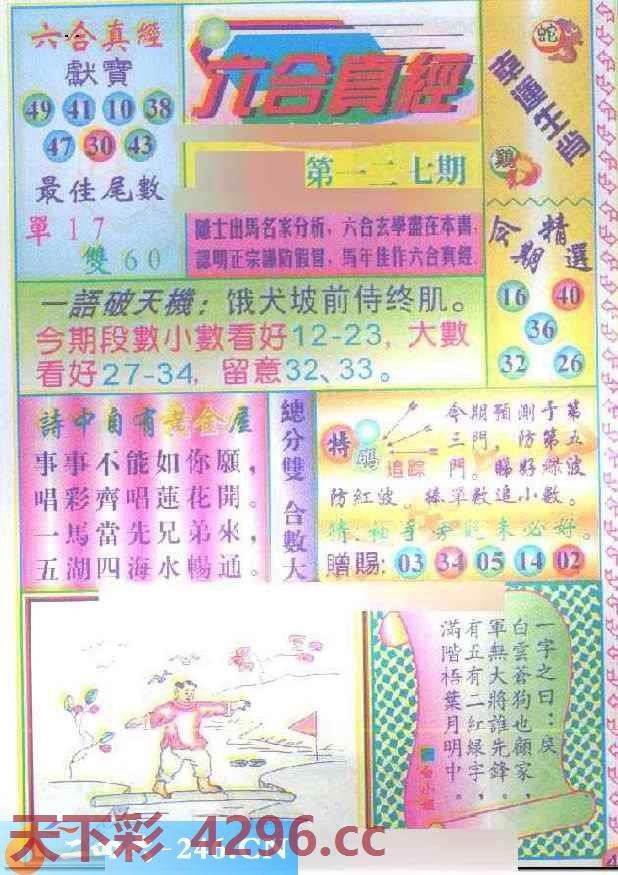 六合真經
獻寶
49 41 10 38
47 30 43
最佳尾數
單 1 7
雙 6 0
六合真經
第一二七期
隱士出馬名家分析，六合玄學盡在本書，
認明正宗謹防假冒，馬年佳作六合真經
幸運生肖
蛇
鷄
今期精選
16 40
36
32 26
一語破天機：饿犬坡前侍终肌。
今期段數小數看好12-23，大數
看好27-34，留意32、33。
詩中自有黃金屋
事事不能如你願，
唱彩齊唱蓮花開。
一馬當先兄弟來，
五湖四海水暢通。
總分雙 合數大
特碼
追踪
今期預測于第
三門，防第五
門。睇好綠波
防紅波。揍單數追小數。
猜：袖手旁觀未必好。
贈賜：03 34 05 14 02
一字之曰：戾
白雲蒼狗也顧家，
軍無大將誰先鋒，
有五有二紅綠字，
滿階梧葉月明中。
天下彩 4296.cc
246.CN